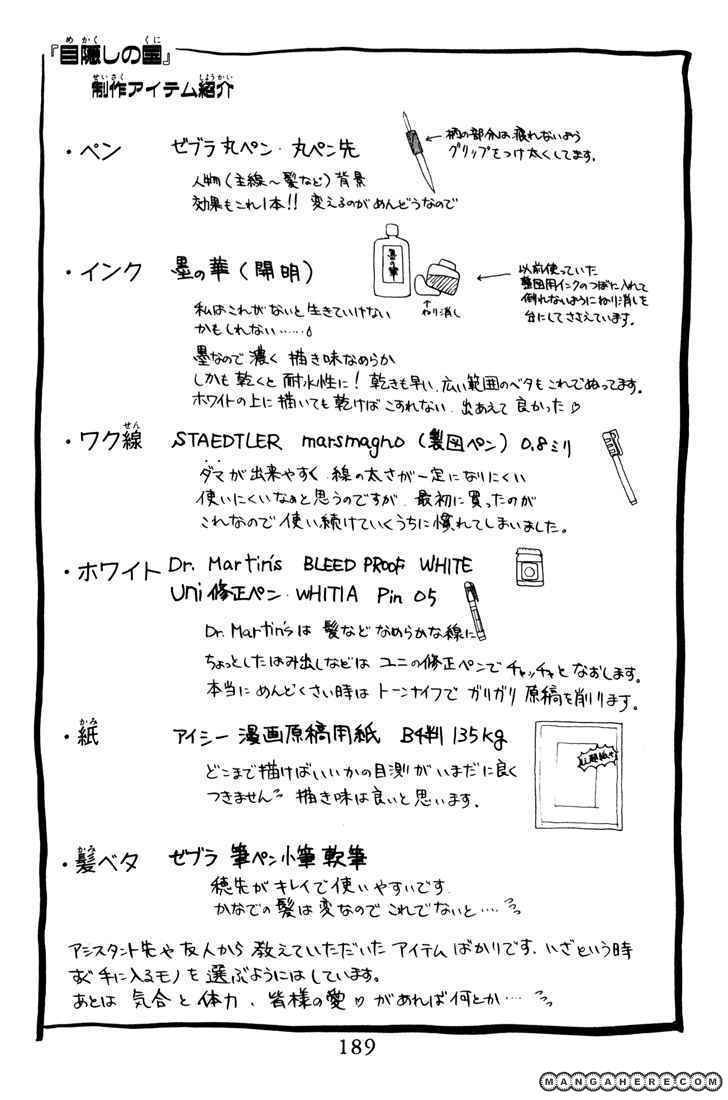 『目隠しの国』
制作アイテム紹介
・ペン ゼブラ丸ペン・丸ペン先
←柄の部分は疲れないよう
グリップをつけ太くしてます。
人物(主線~髪など)背景
効果もこれ1本!! 変えるのがめんどうなので
・インク 墨の華(開明)
墨の華
↑ねり消し
← 以前使っていた
製図用インクのつぼに入れて
倒れないようにねり消しを
台にしてささえています。
私はこれがないと生きていけない
かもしれない……
墨なので濃く 描き味なめらか
しかも乾くと耐水性に!乾きも早い、広い範囲のベタもこれでぬってます。
ホワイトの上に描いても乾けばこすれない。出あえて良かった♡
・ワク線 STAEDTLER marsmagno(製図ペン)0.8ミリ
ダマが出来やすく 線の太さが一定になりにくい
使いにくいなぁと思うのですが、最初に買ったのが
これなので使い続けていくうちに慣れてしまいました。
・ホワイト Dr. Martin's BLEED PROOF WHITE
Uni修正ペン・WHITIA Pin 05
Dr. Martin'sは 髪など なめらかな線に
ちょっとしたはみ出しなどは ユニの修正ペンで チャッチャと なおします。
本当にめんどくさい時は トーンナイフで ガリガリ 原稿を削ります。
・紙 アイシー 漫画原稿用紙 B4判 135kg
どこまで描けばいいかの目測がいまだに良く
つきません 描き味は良いと思います。
・髪ベタ ゼブラ 筆ペン小筆 軟筆
穂先がキレイで使いやすいです。
かなでの髪は変なのでこれでないと……
アシスタント先や友人から 教えていただいた アイテム ばかりです、いざという時
すぐ手に入るモノを選ぶようにはしています。
あとは 気合 と 体力、皆様の愛♡があれば何とか……
189
MANGAHERE.COM